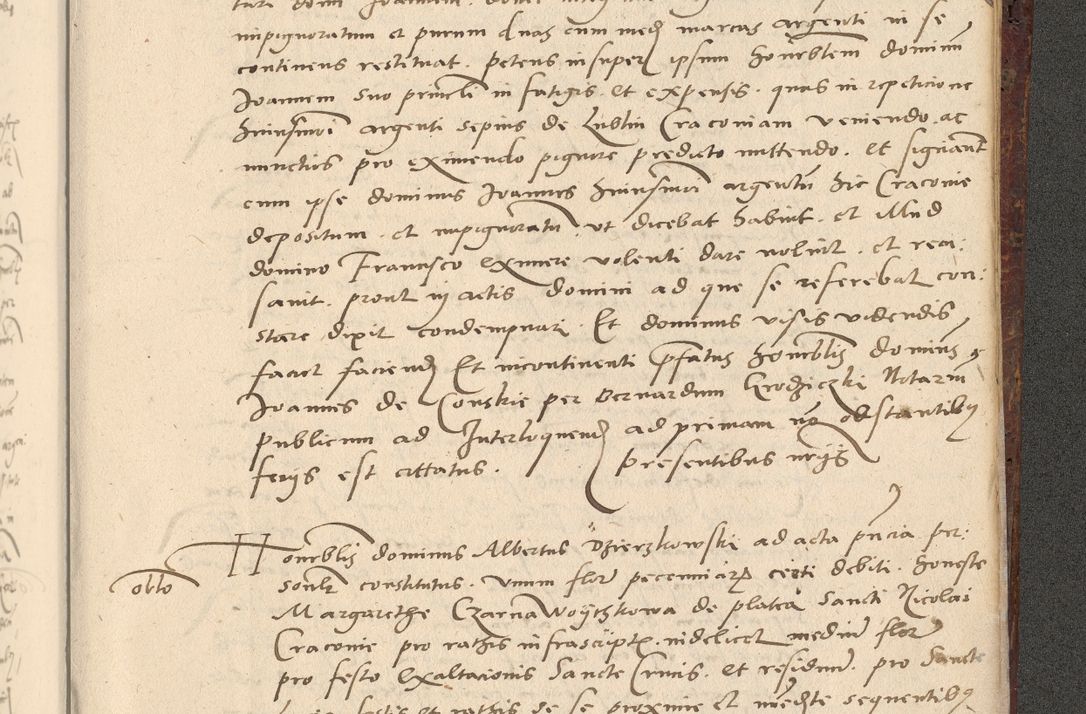 impignoratum et purum duas cum med marcas argenti in se
continens restituat. petens insuper ipsum honrblem dominum
Joannem suo princli in fatigis. et expensis. quas in repeticione
huiusmoi argenti sepius de Lublin Cracoviam veniendo. ac
nunctius pro eximendo pignore predicto mittendo. et signant
cum ipse dominus Joannes huiusmoi argentum hic Cracovie
depositum. et impignoratum. ut dicebat habuit. et illud
domino Francisco eximere volenti dare noluit. et recu:
sauit. prout in actis domini ad que se referebat con:
stare dixit condempnari. Et dominus visis videndis
faciet faciend Et incontinenti pfatus honrblis dominus
Joannes de Conskie per Bernardum Grodziczki Notarium
publicum ad Interloquend ad primam no obstantibus
ferijs est cittatus. presentibus urijs
Honrblis dominus Albertus Dzierzkowski ad acta pncia per:
obto
sonlr constitutus. Unum flor pecuniar certi debiti. honeste
Margarethe Czarna Woytzkowa de platea Sancti Nicolai
Cracovie pro rathis infrascript. videlicet medium flor
pro festo Exaltacionis Sancte Crucis. et residuum. pro Sancte
festis et rathis de se proxime et immedte sequentibus